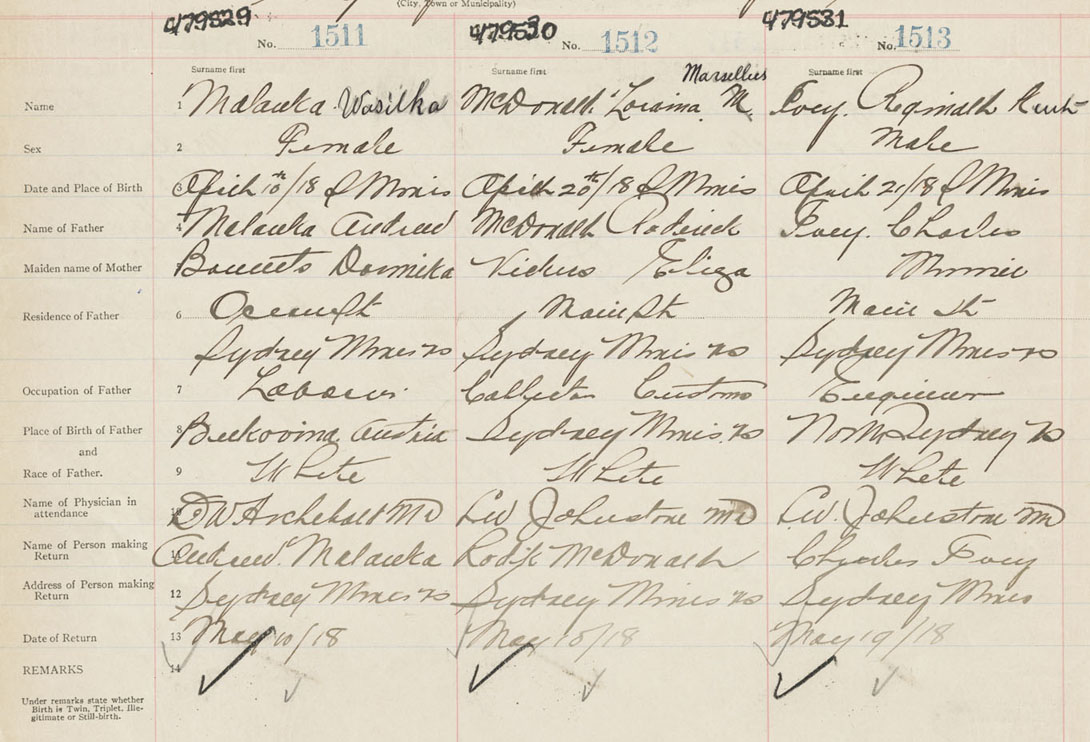 (City, Town or Municipality)
479529 479530 479531
No. 1511 No. 1512 No. 1513
Surname first Surname first Marsellus Surname first
Name 1 Malanka Wasilka McDonald Loraina M. Ivey. Reginald
Sex 2 Female Female Male
Date and Place of Birth 3 April 10th/18 S Mines April 20th/18 S Mines April 21/18 S Mines
Name of Father 4 Malanka Andrew McDonald Roderick Ivey. Charles
Maiden name of Mother Domnika Vickers Eliza Minnie
Residence of Father 6 Ocean St Main St Main St
Sydney Mines NS Sydney Mines NS Sydney Mines NS
Occupation of Father 7 Laborer Collector Customs Engineer
Place of Birth of Father 8 Buckovina Austria Sydney Mines NS North Sydney NS
and
Race of Father. 9 White White White
Name of Physician in
attendance 10 DW Archibald MD LW Johnstone MD LW. Johnstone MD
Name of Person making
Return 11 Andrew Malanka Rod'k McDonald Charles Ivey
Address of Person making
Return 12 Sydney Mines NS Sydney Mines NS Sydney Mines
Date of Return 13 May 10/18 May 18/18 May 19/18
REMARKS 14
Under remarks state whether
Birth is Twin, Triplet, Ille-
gitimate or Still-birth.